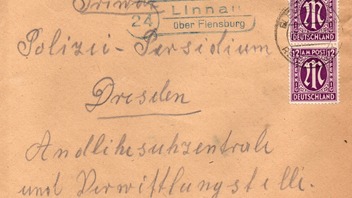 24
Linnau
über Flensburg
Polizei-Persidium
Dresden
Andlihesuhzentrale
und Verwiftlungstelli.
DEUTSCHLAND
12 AM. POST 12
DEUTSCHLAND